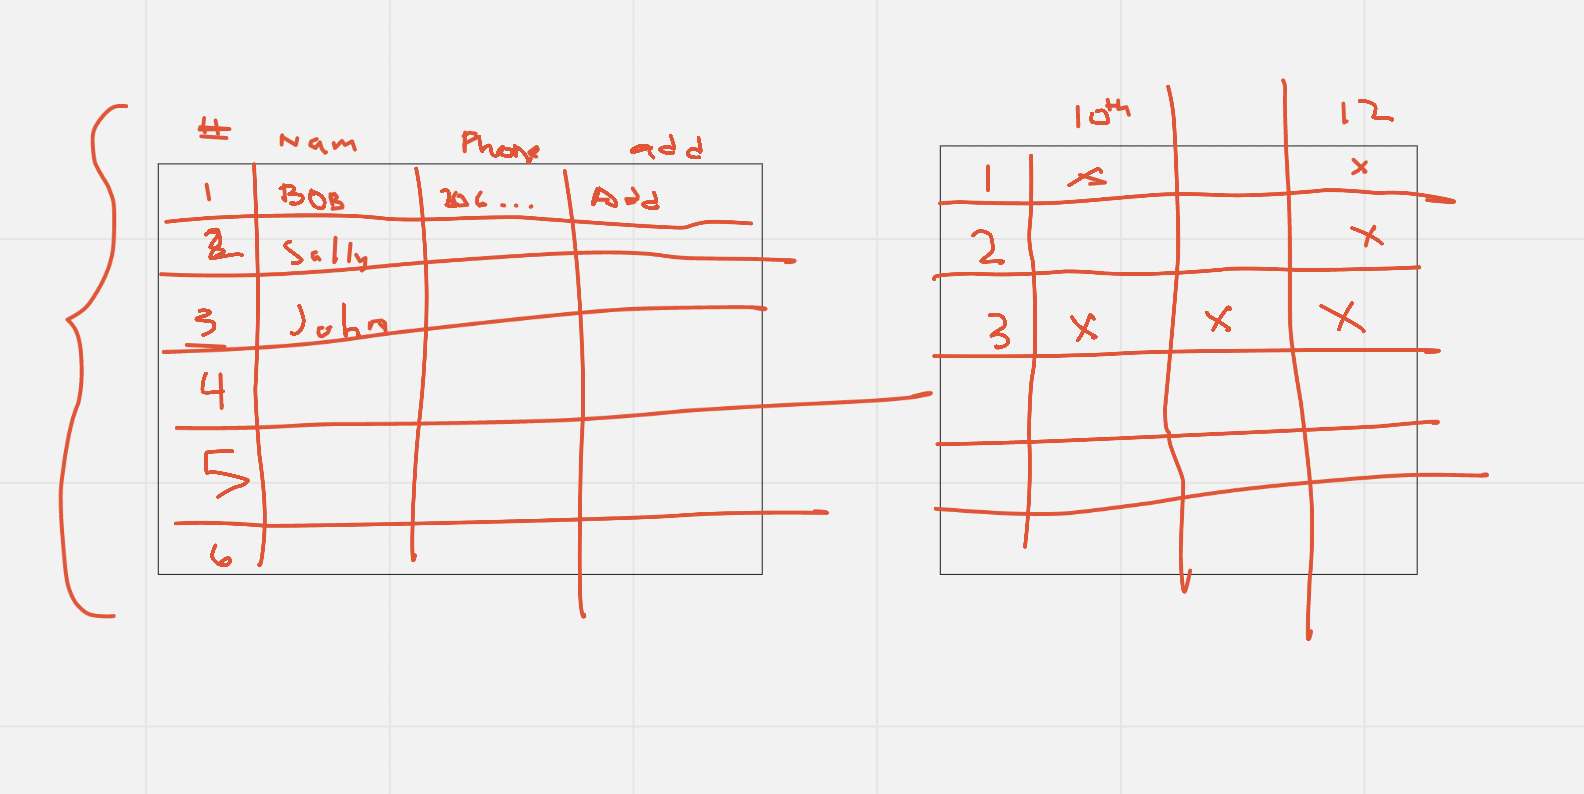 # Nam Phone add
1 BOB 206... Add
2 Sally
3 John
4
5
6
10th 12
1 X X
2 X
3 X X X